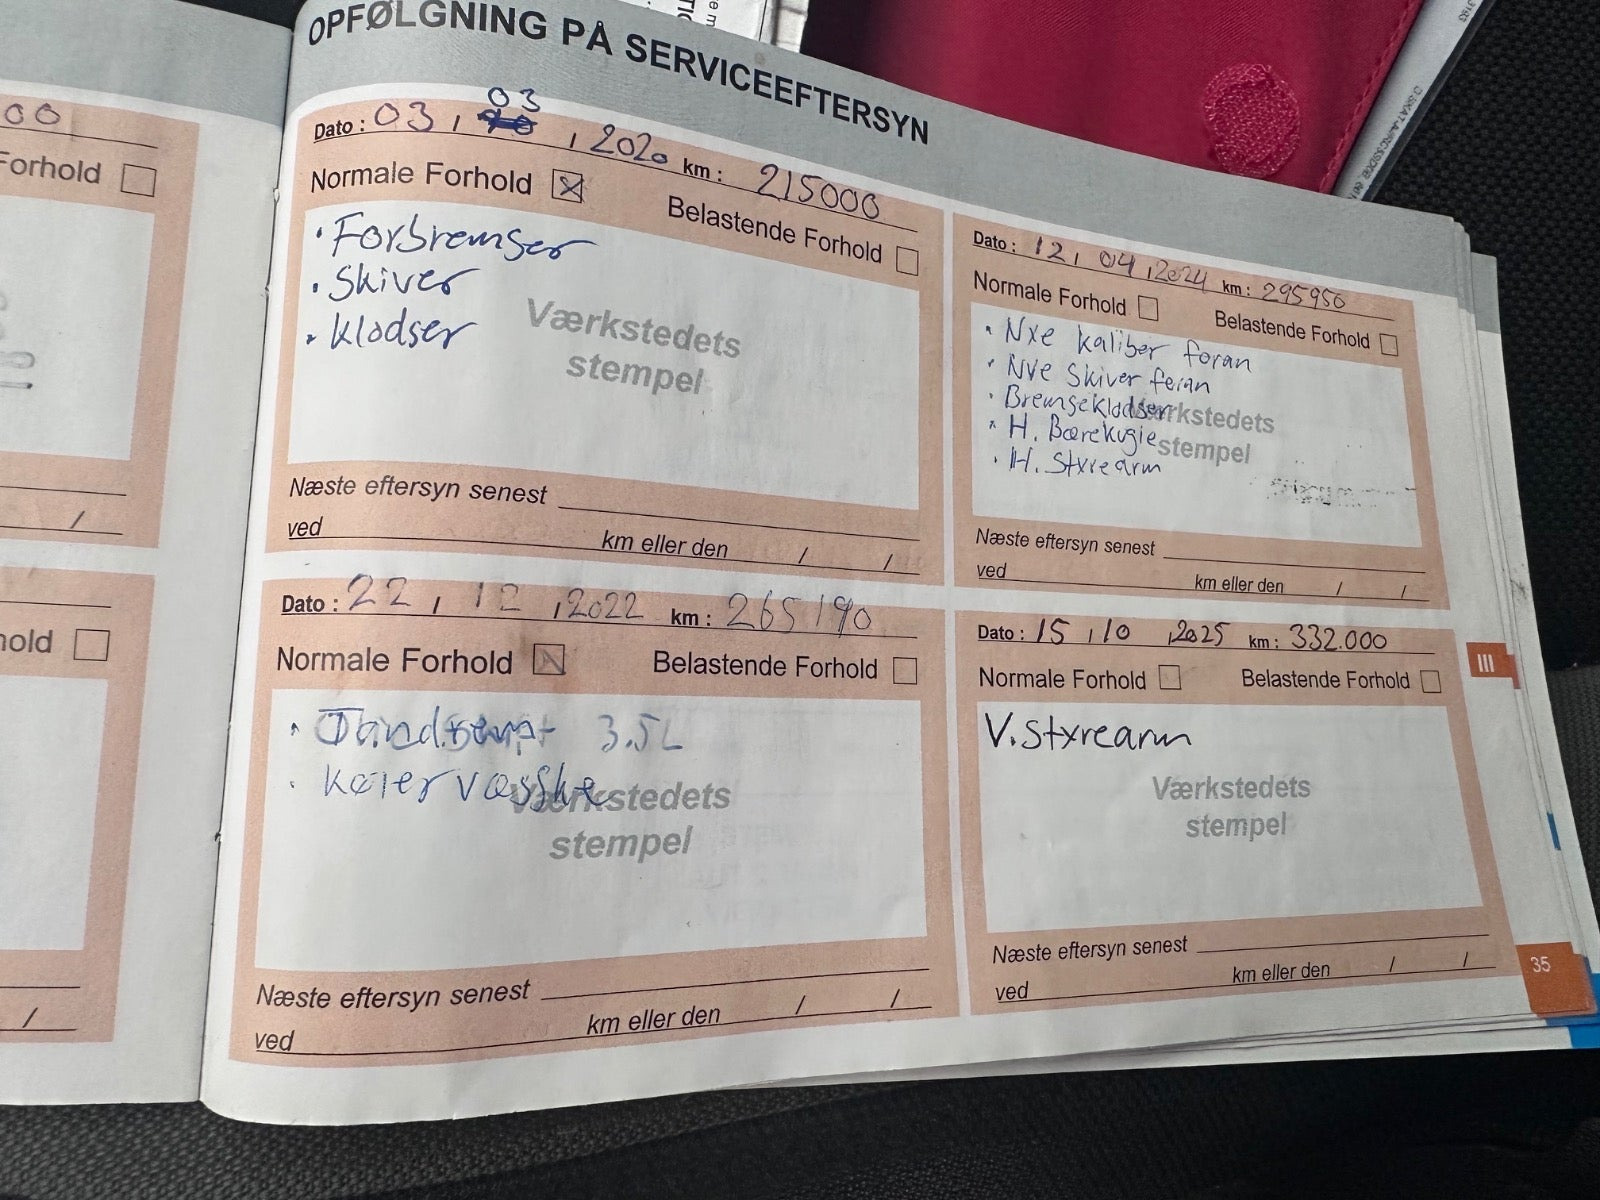 OPFØLGNING PÅ SERVICEEFTERSYN
00
Forhold
hold
Dato : 03, 03, 2020 km : 215000
Normale Forhold Belastende Forhold
• Forbremser
• Skiver
• Klodser
Værkstedets
stempel
Næste eftersyn senest
ved km eller den / /
Dato : 22, 12, 2022 km : 265190
Normale Forhold Belastende Forhold
• 3.5L
• Køler væsske
Værkstedets
stempel
Næste eftersyn senest
ved km eller den / /
Dato : 12, 04, 2024 km : 295950
Normale Forhold Belastende Forhold
• Nye kaliber foran
• Nye Skiver foran
• Bremseklodser
• H. Bærekugle
• H. Styrearm
Værkstedets
stempel
Næste eftersyn senest
ved km eller den / /
Dato : 15, 10, 2025 km : 332.000
Normale Forhold Belastende Forhold
V. Styrearm
Værkstedets
stempel
Næste eftersyn senest
ved km eller den / /
III
35